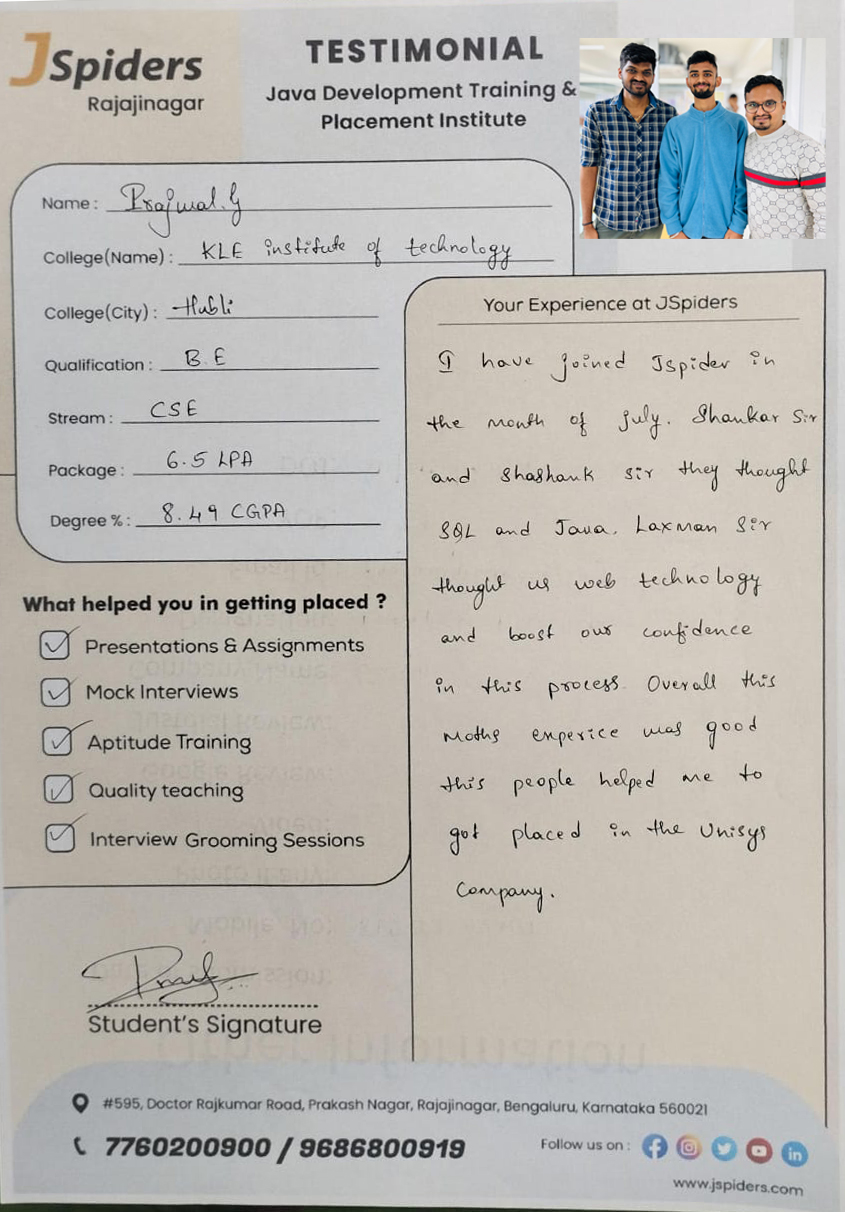 JSpiders
Rajajinagar
TESTIMONIAL
Java Development Training &
Placement Institute
Name : Prajwal.G
College(Name) : KLE institute of technology
College(City) : Hubli
Qualification : B.E
Stream : CSE
Package : 6.5 LPA
Degree % : 8.49 CGPA
What helped you in getting placed ?
Presentations & Assignments
Mock Interviews
Aptitude Training
Quality teaching
Interview Grooming Sessions
Student's Signature
Your Experience at JSpiders
I have joined Jspider in
the month of july. Shankar Sir
and Shashank sir they thought
SQL and Java. Laxman Sir
thought us web technology
and boost our confidence
in this process. Overall this
moths experice was good
this people helped me to
got placed in the Unisys
Company.
#595, Doctor Rajkumar Road, Prakash Nagar, Rajajinagar, Bengaluru, Karnataka 560021
7760200900 / 9686800919
Follow us on :
www.jspiders.com